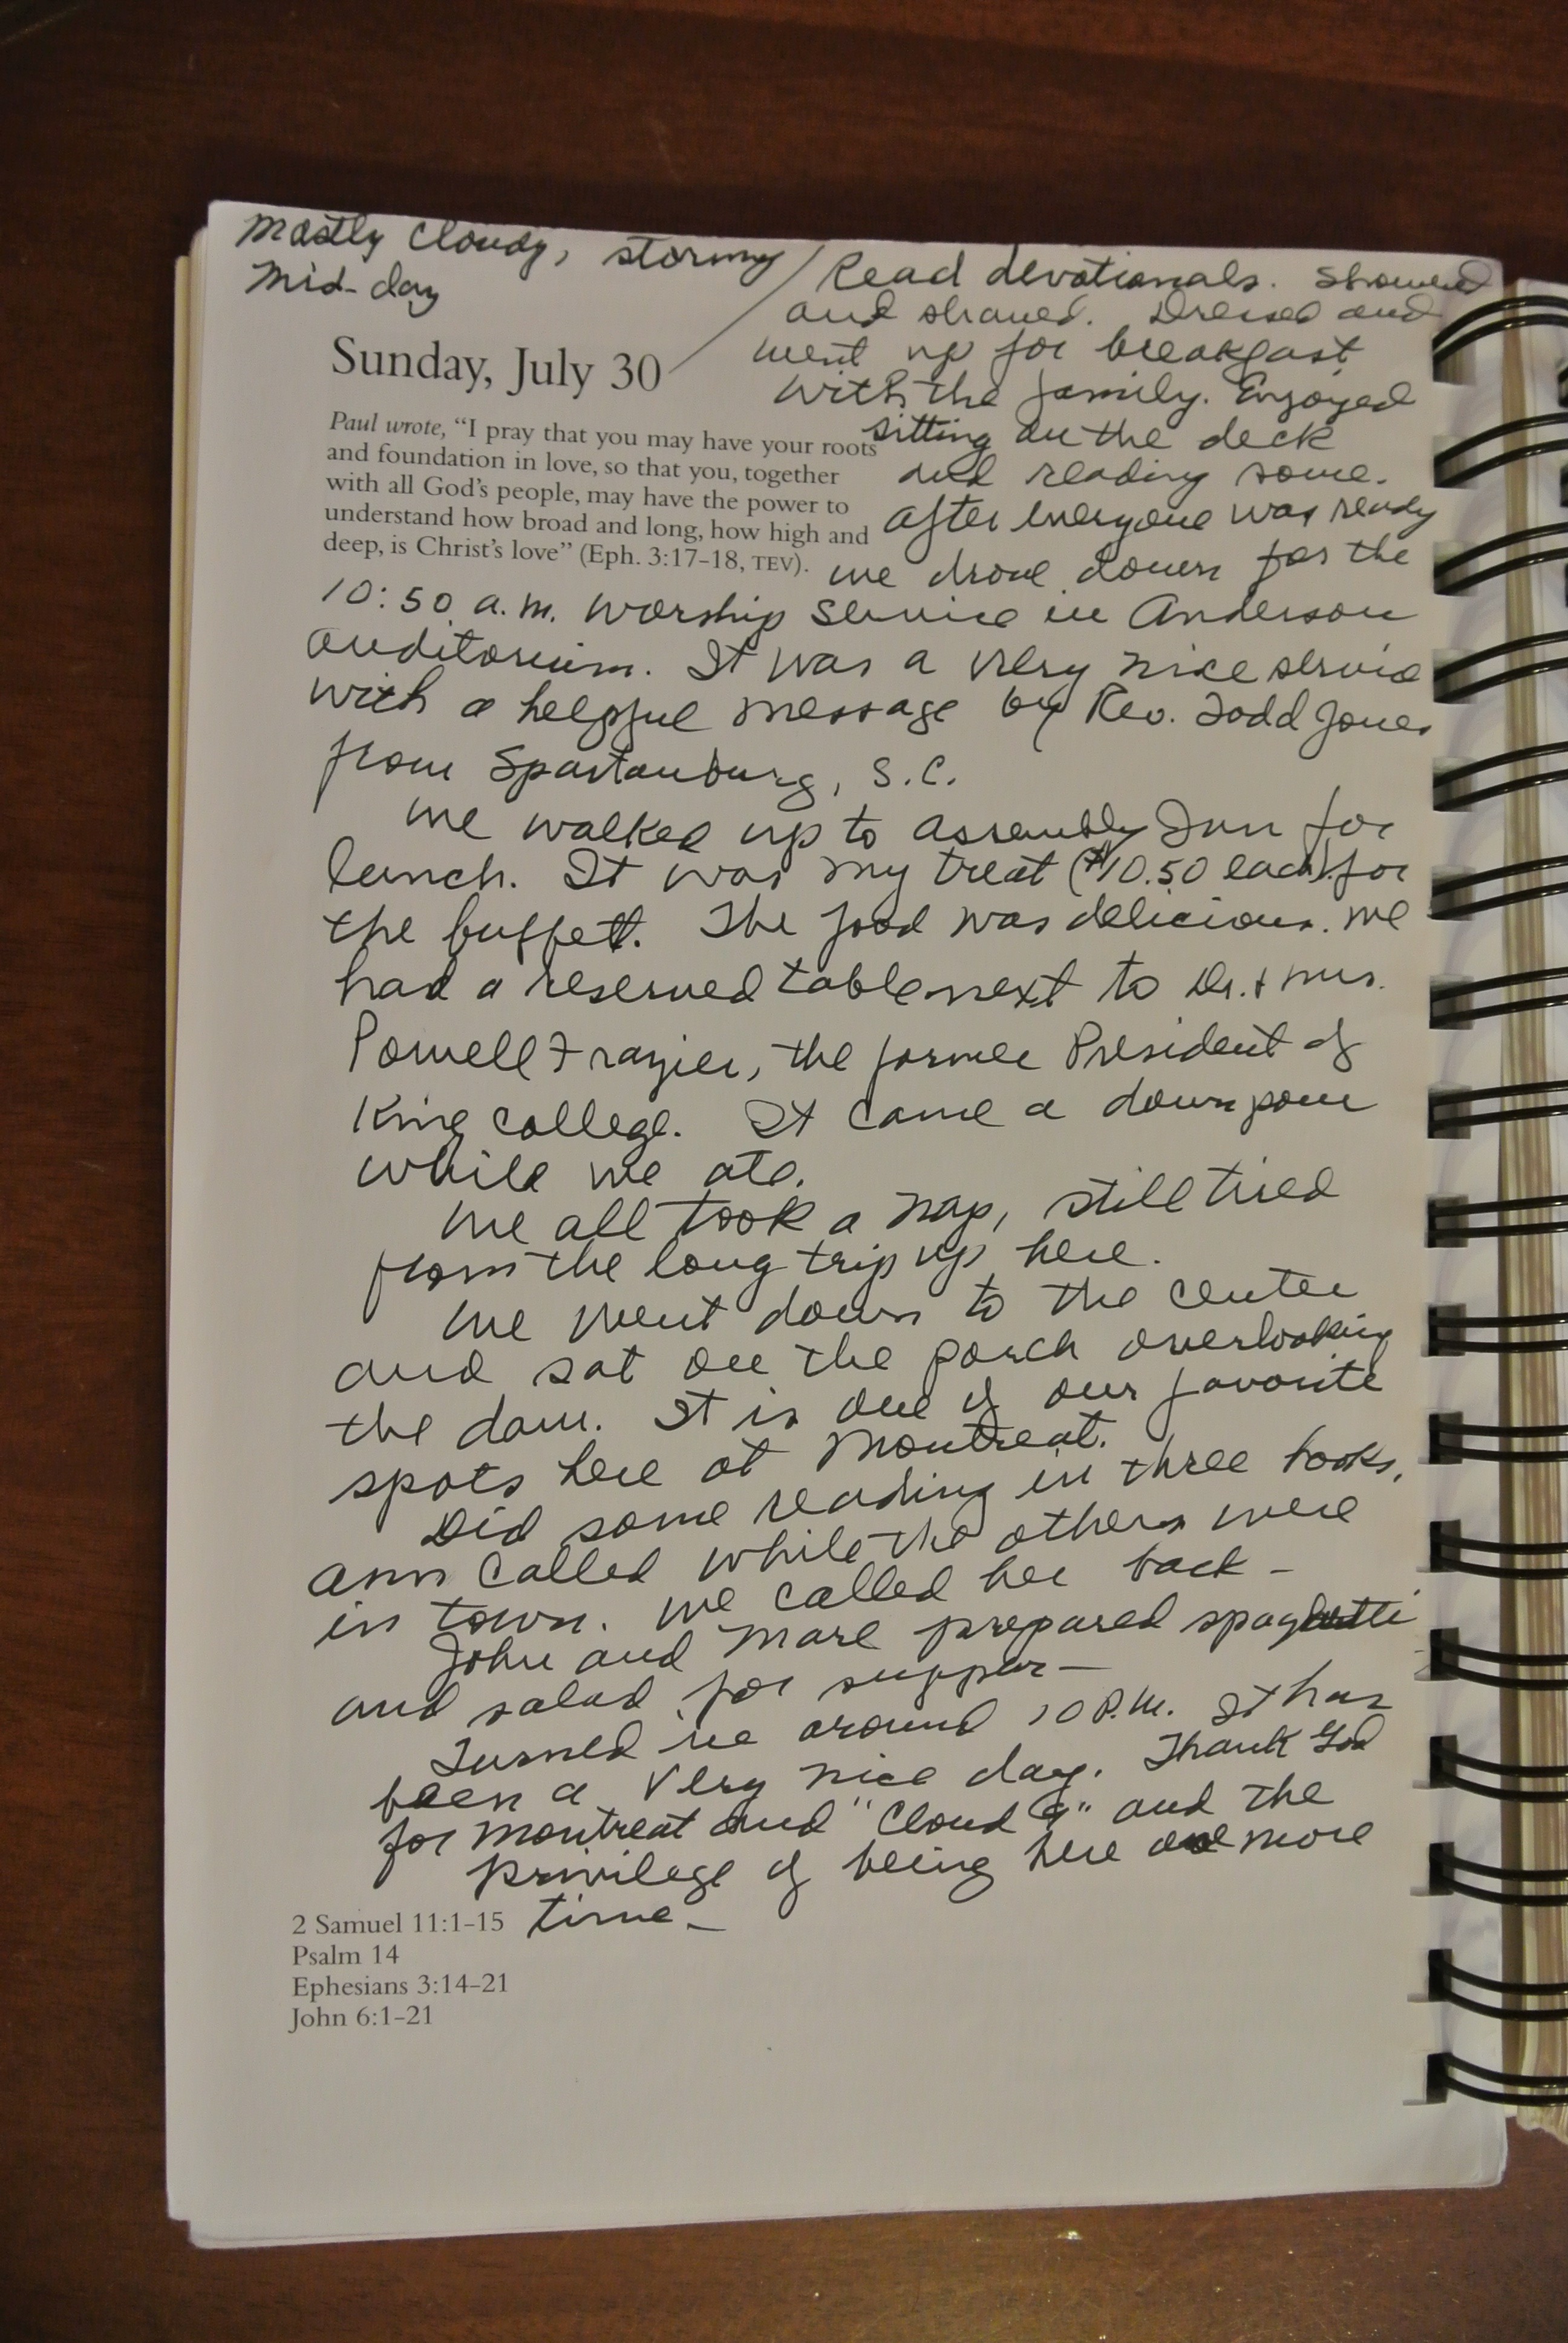 Mostly cloudy, stormy
Mid-day
Sunday, July 30
Paul wrote, “I pray that you may have your roots
and foundation in love, so that you, together
with all God’s people, may have the power to
understand how broad and long, how high and
deep, is Christ’s love” (Eph. 3:17–18, TEV).
Read devotionals. Showered
and shaved. Dressed and
went up for breakfast
with the family. Enjoyed
sitting on the deck
and reading some.
After everyone was ready
we drove down for the
10:50 a.m. worship service in Anderson
Auditorium. It was a very nice service
with a helpful message by Rev. Todd Jones
from Spartanburg, S.C.
We walked up to Assembly Inn for
lunch. It was my treat ($10.50 each) for
the buffet. The food was delicious. We
had a reserved table next to Dr. + Mrs.
Powell Frazier, the former President of
King College. It came a downpour
while we ate.
We all took a nap, still tired
from the long trip up here.
We went down to the center
and sat on the porch overlooking
the dam. It is one of our favorite
spots here at Montreat.
Did some reading in three books.
Ann called while the others were
in town. We called her back –
John and Mare prepared spaghetti
and salad for supper –
Turned in around 10 P.M. It has
been a very nice day. Thank God
for Montreat and "Cloud 9" and the
privilege of being here one more
time –
2 Samuel 11:1–15
Psalm 14
Ephesians 3:14–21
John 6:1–21